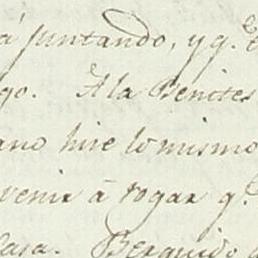 á juntando, y q.
go. A la Benites
ano hice lo mismo
venir à rogar q.
Casa. Berguido